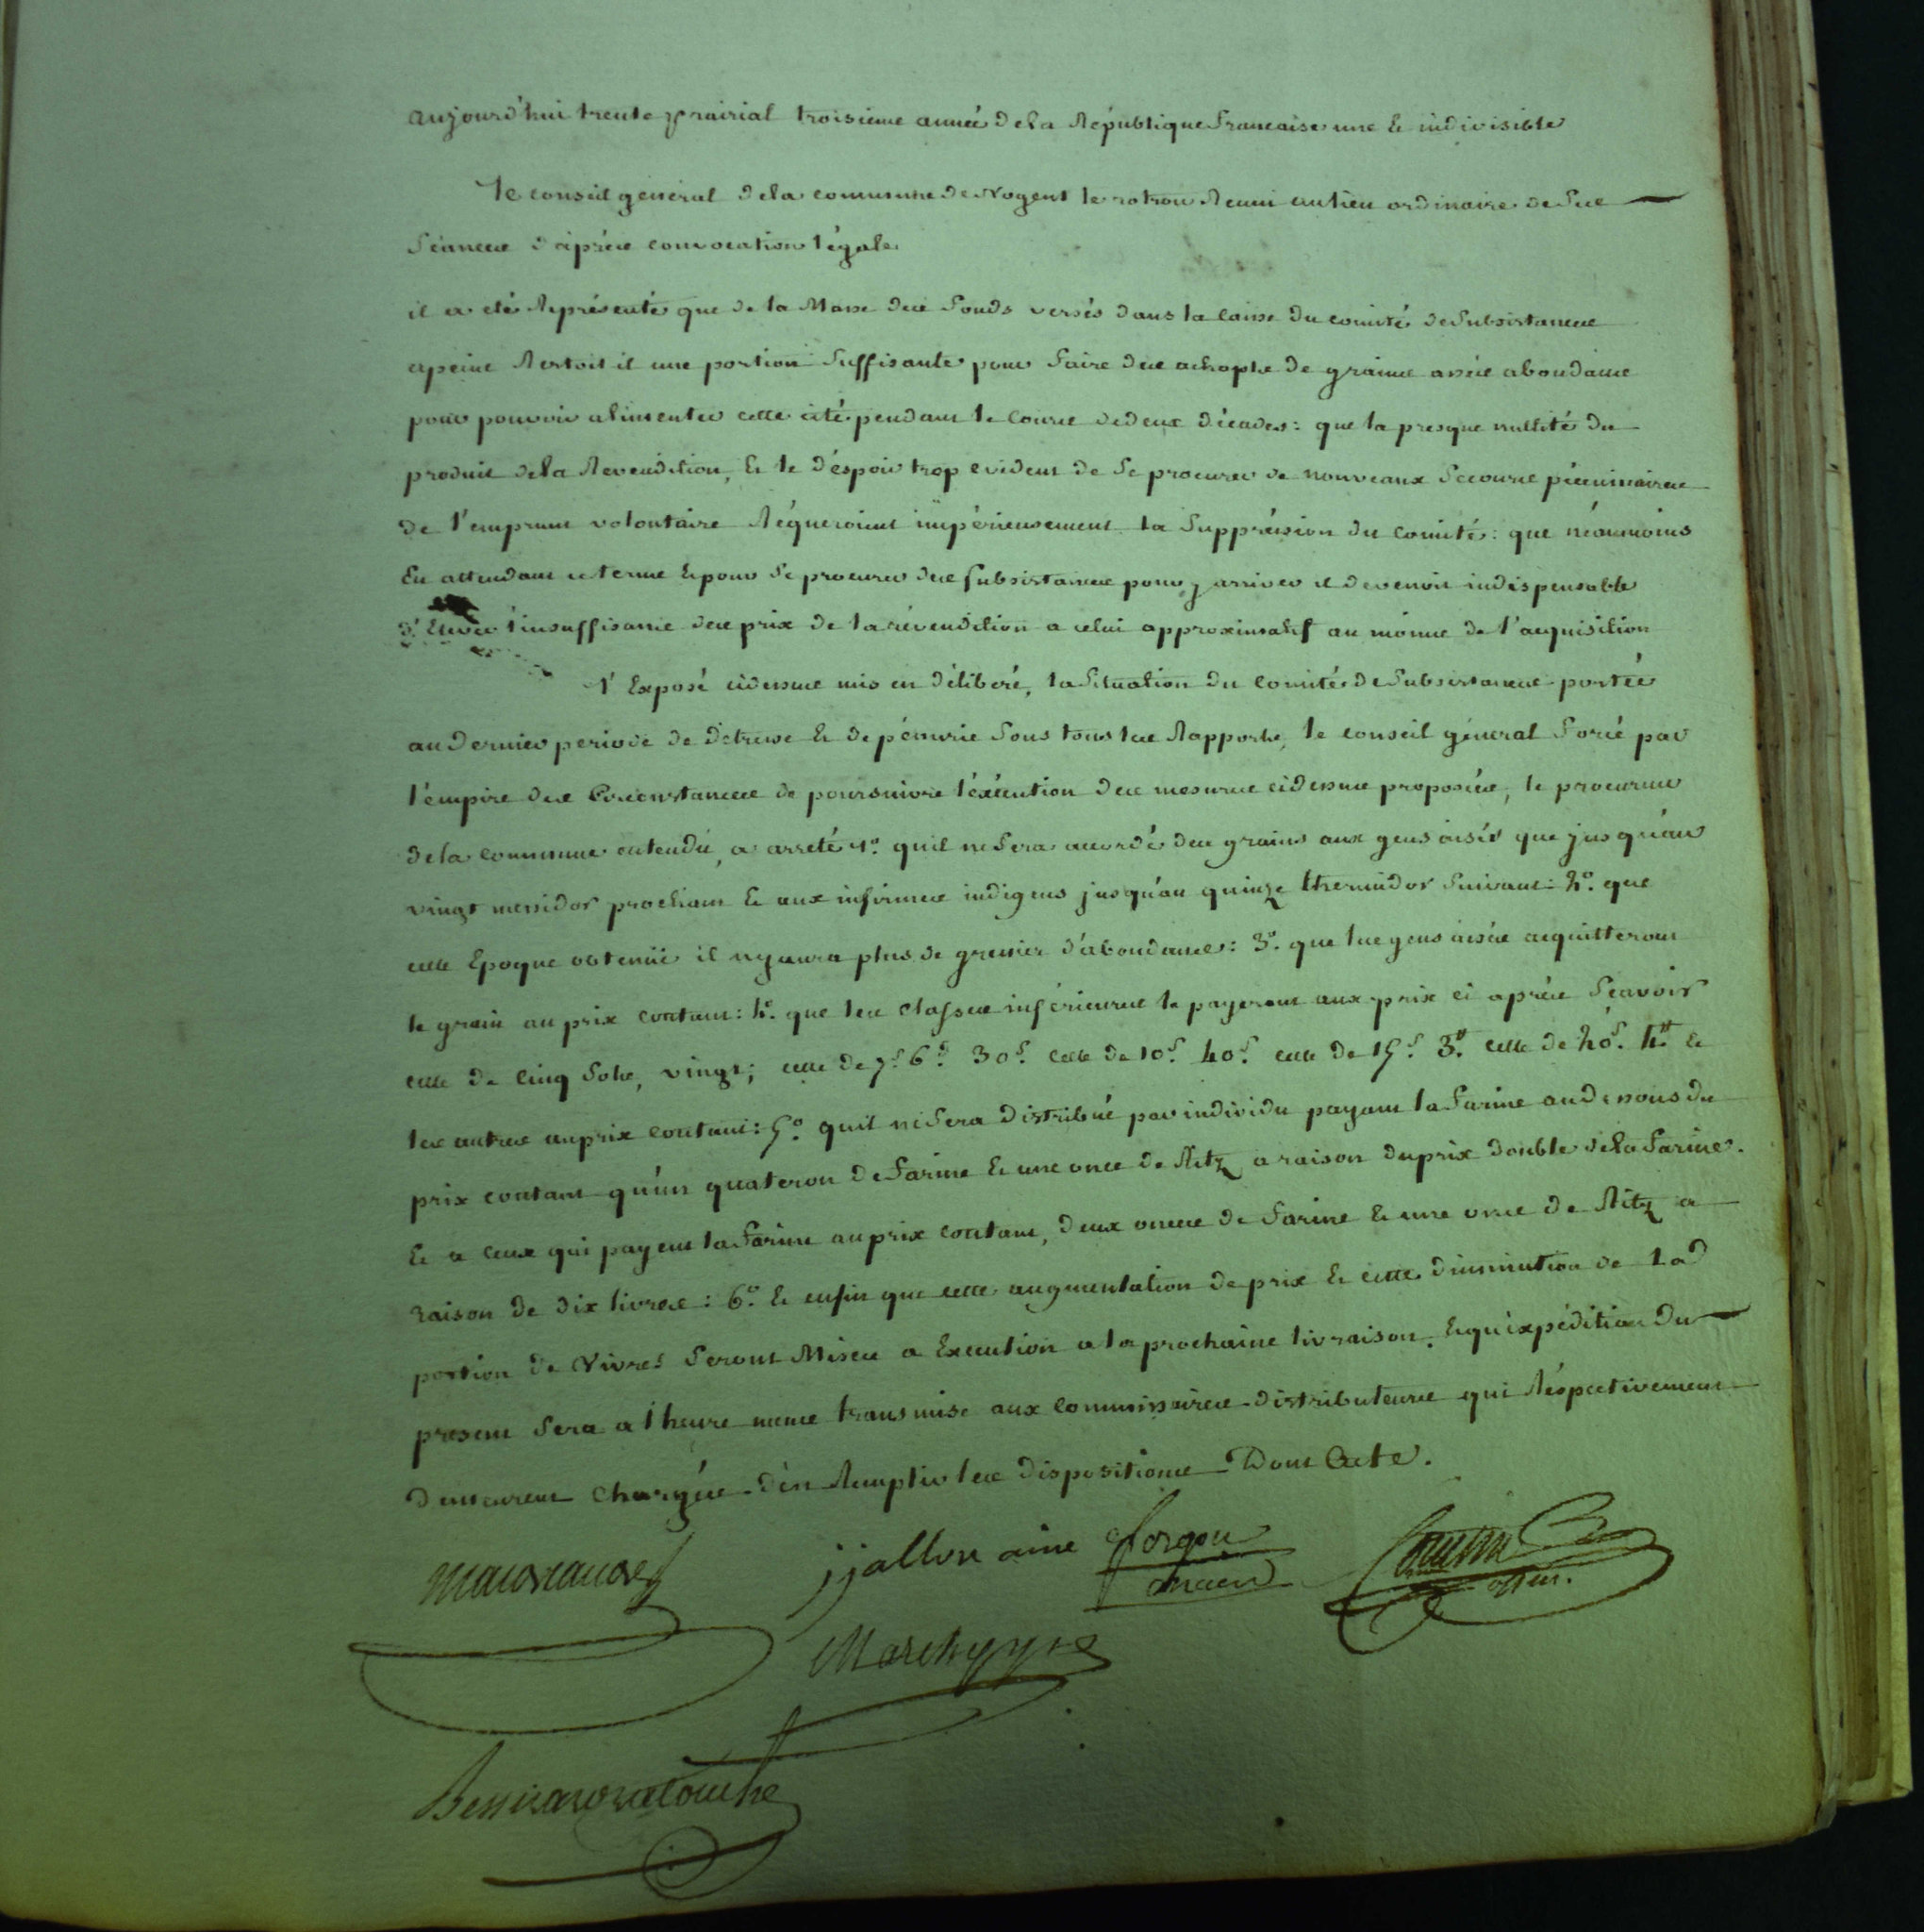 aujourd'hui trente prairial troisieme année de la République francaise une & indivisible
le conseil général de la commune de Nogent le rotrou Réuni au lieu ordinaire de ses
séances d'après convocation légale
il a été Représenté que de la Masse des fonds versés dans la caisse du comité de subsistances
apeine Restoit il une portion suffisante pour faire des achapts de grains assés abondans
pour pouvoir alimenter cette cité pendant le cours de deux décades : que la presque nullité du
produit de la Revendition, & le déspoir trop evident de se procurer de nouveaux secours pécuniaires
de l'emprunt volontaire Réqueroient impérieusement la suppréssion du comité : que néanmoins
En attendant ce terme & pour se procurer des subsistances pour y arriver il devenoit indispensable
d'Elever l'insuffisance des prix de la révendition a celui approximatif au moins de l'acquisition
l'Exposé cidessus mis en déliberé, la situation du comité de subsistances portée
au dernier periode de détresse & de pénurie sous tous les Rapports, le conseil général forcé par
l'empire des Circonstances de poursuivre l'éxécution des mesures cidessus proposées, le procureur
de la commune entendu, a arreté 1°. quil ne sera accordé des grains aux gens aisés que jusqu'au
vingt messidor prochain & aux infirmes indigens jusqu'au quinze thermidor suivant : 2°. que
cette Epoque obtenüe il ny aura plus de grenier d'abondance : 3°. que les gens aisés acquitteront
le grain au prix coutant : 4°. que les classes inférieures le payeront aux prix ci après scavoir
celle de cinq sols, vingt ; celle de 7s. 6d. 30s. celle de 10s. 40s. celle de 15s. 3tt. celle de 20s. 4tt. &
les autres au prix coutant : 5°. quil ne sera distribué par individu payant la farine audessous du
prix coutant qu'un quateron de farine & une once de Ritz a raison du prix double de la farine.
& a ceux qui payent la farine au prix coutant, deux onces de farine & une once de Ritz a
raison de dix livres : 6°. & enfin que cette augmentation de prix & cette diminution de la
portion de vivres seront Mises a Execution a la prochaine livraison. & qu'expédition du
present sera a l'heure meme transmise aux commissaires distributeurs qui Réspectivement
demeurent chargés d'en Remplir les dispositions Dont Acte.
jjallon ainé